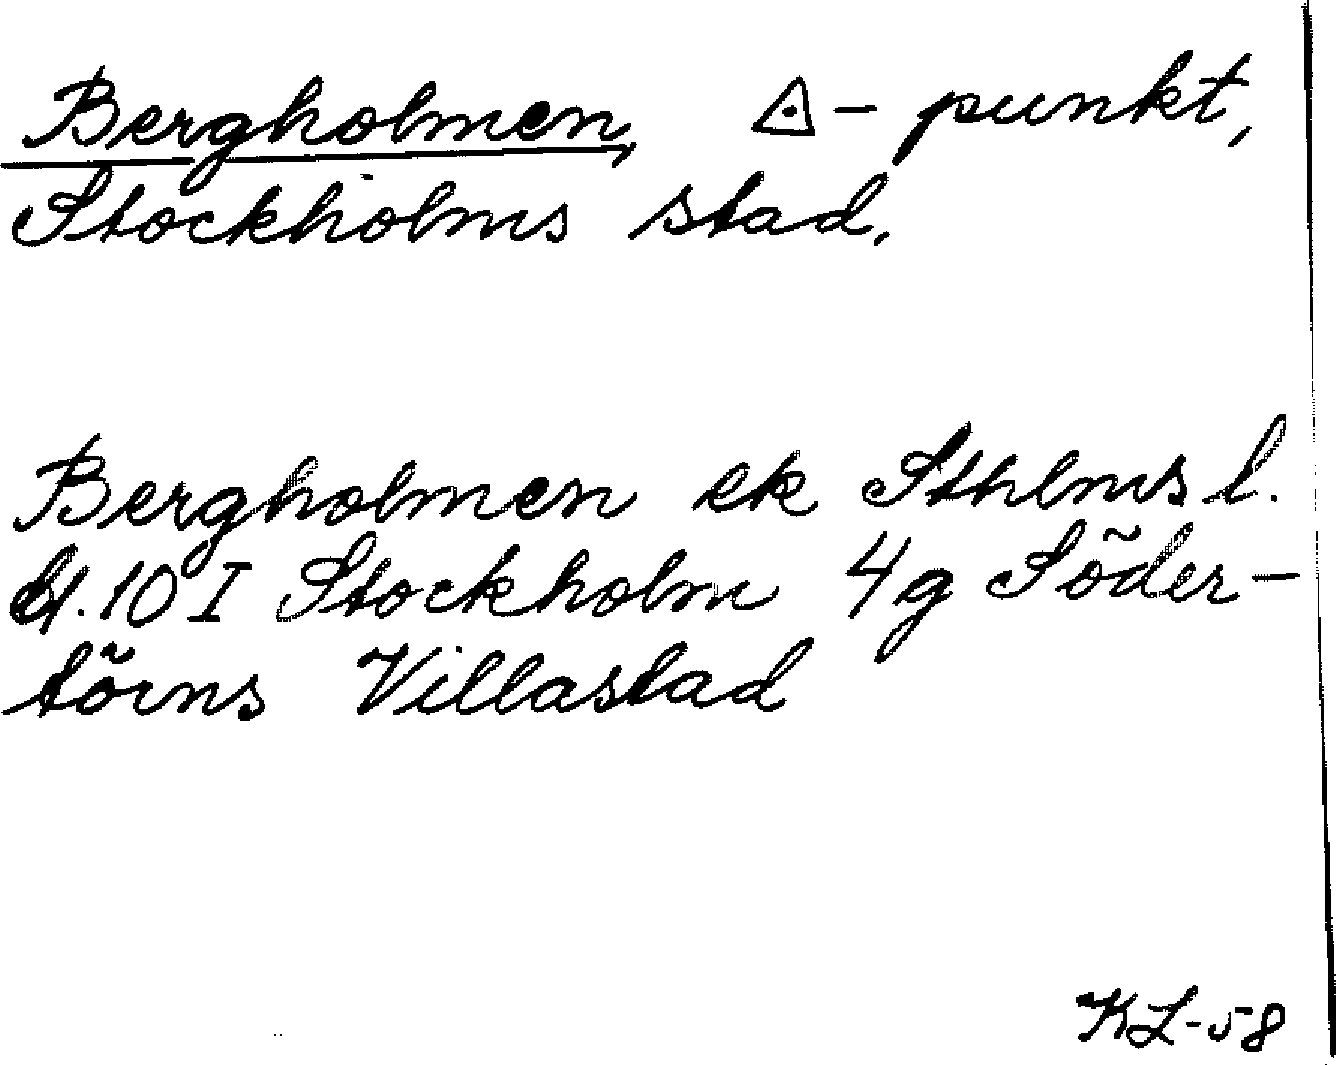 Bergholmen, ◬ - punkt,
Stockholms stad.
Bergholmen ek Sthlms l.
bl. 10 I Stockholm 4g Söder-
törns Villastad
KL-58